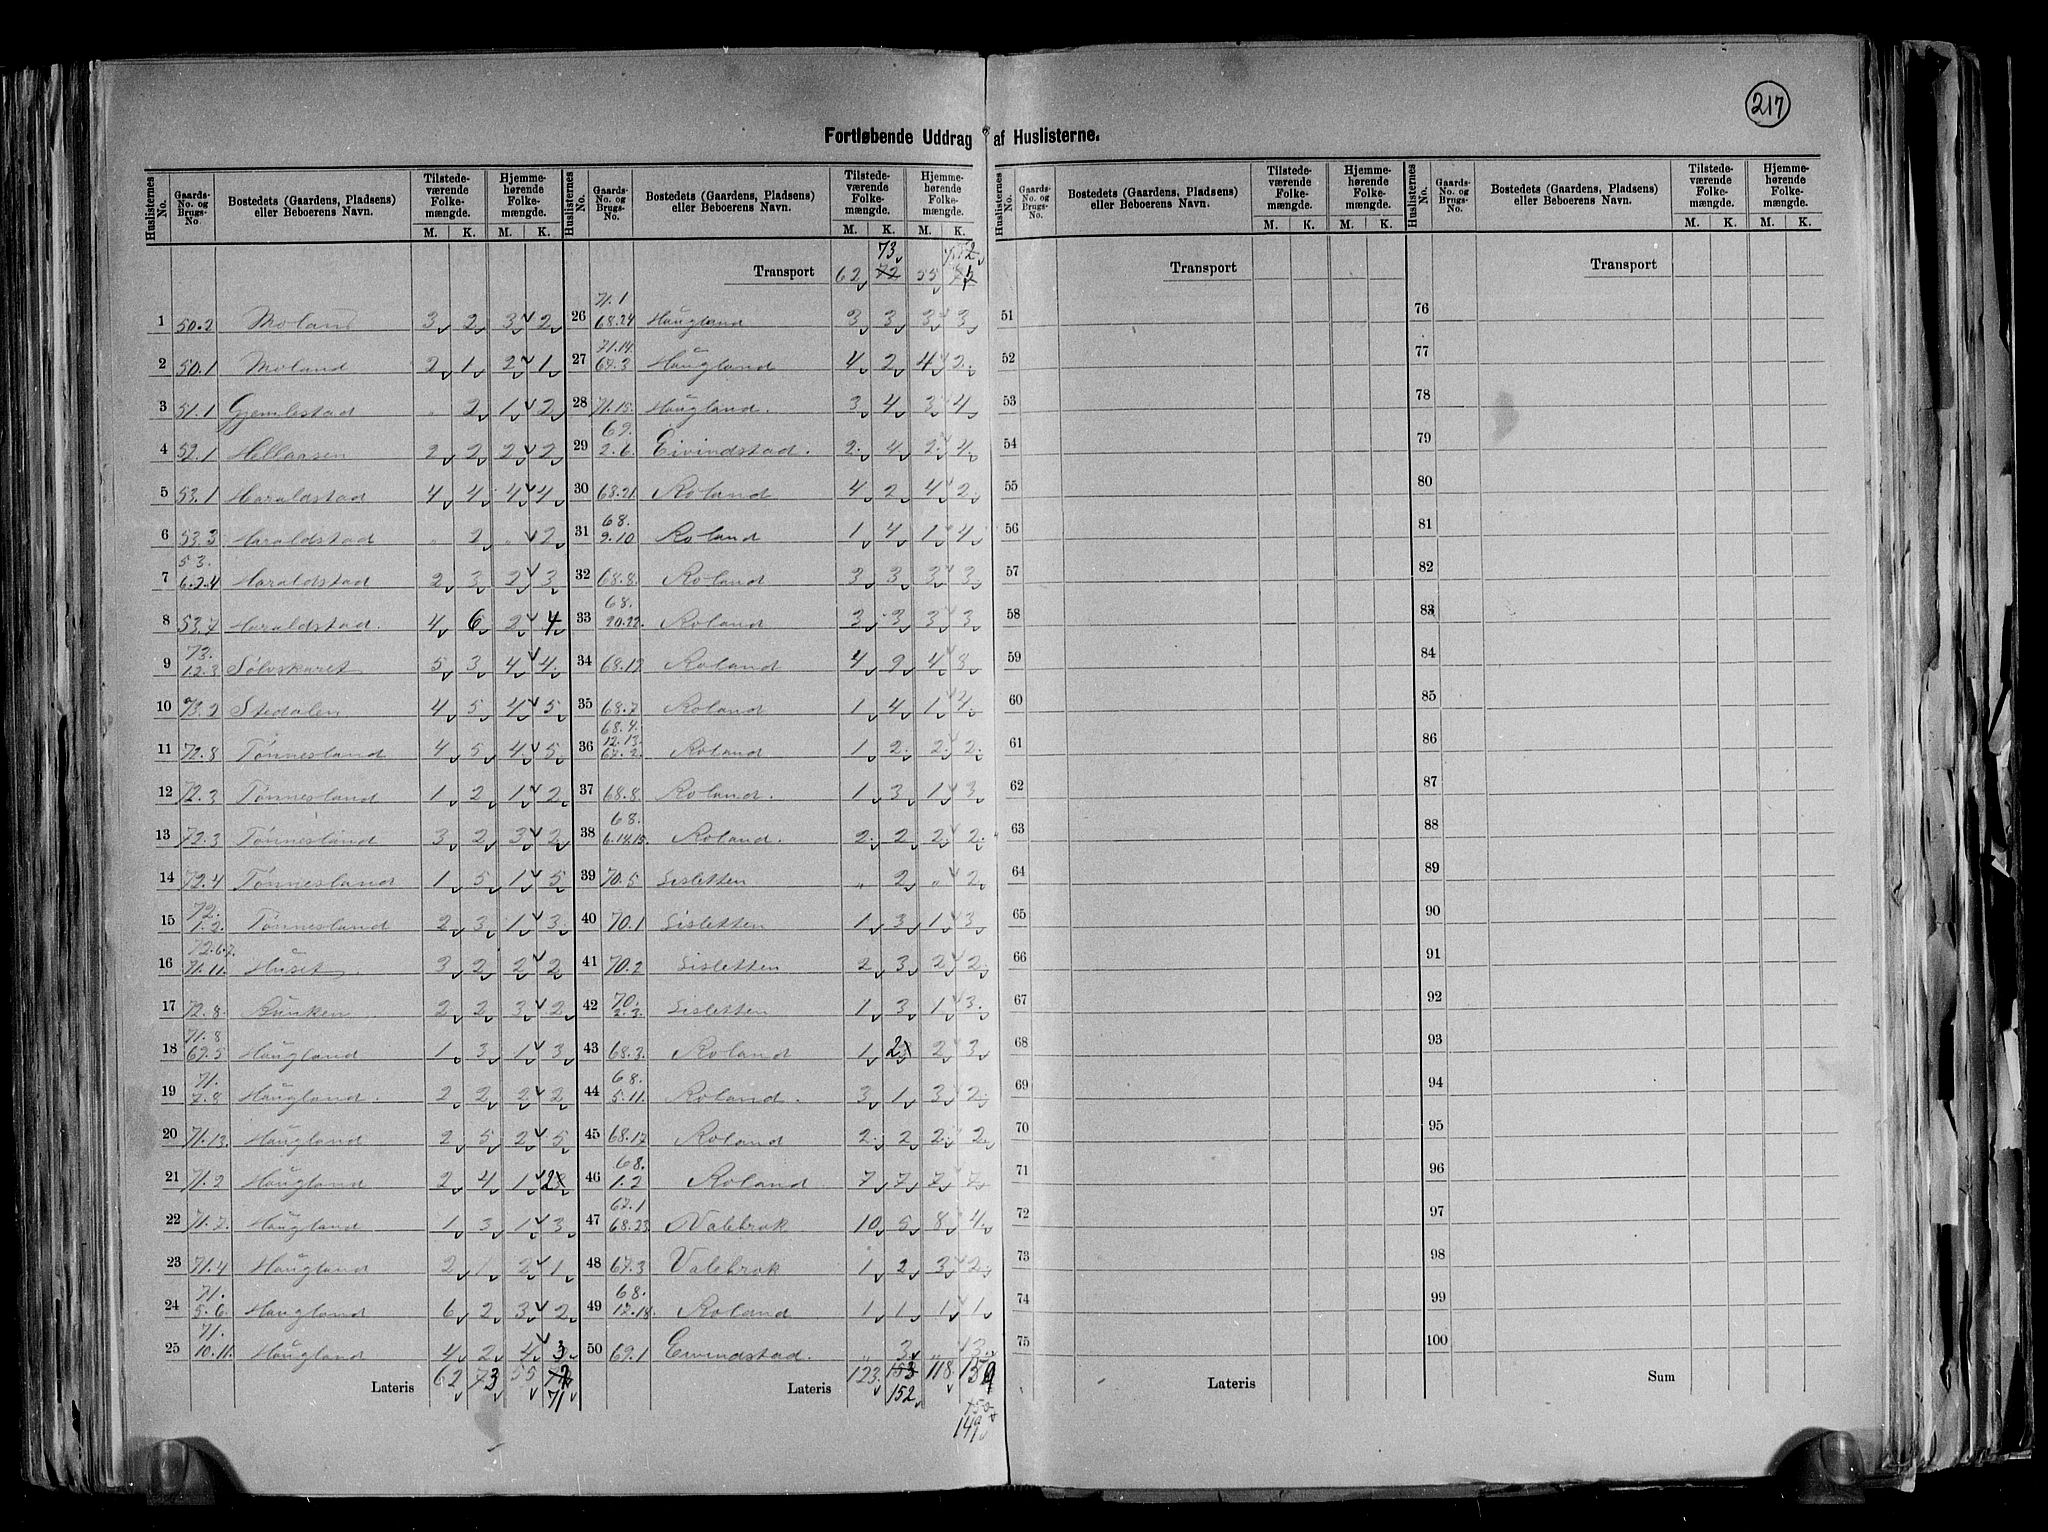 217
Fortløbende Uddrag af Huslisterne.
Huslisternes No. Gaards-No. og Brugs-No. Bostedets (Gaardens, Pladsens) eller Beboerens Navn. Tilstedeværende Folkemængde. M. K. Hjemmehørende Folkemængde. M. K.
1 50.2 Moland 3 2 3 2
2 50.1 Moland 2 1 2 1
3 51.1 Gjemlestad " 2 1 2
4 52.1 Hellaasen 2 2 2 2
5 53.1 Haraldstad 4 4 4 4
6 53.3 Haraldstad " 2 " 2
7 53. 6.2.4 Haraldstad 2 3 2 3
8 53.7 Haraldstad. 4 6 2 4
9 73. 1.2.3 Sølvskaret 5 3 4 4
10 73.2 Stedalen 4 5 4 5
11 72.8 Tønnesland 4 5 4 5
12 72.3 Tønnesland 1 2 1 2
13 72.3 Tønnesland 3 2 3 2
14 72.4 Tønnesland 1 5 1 5
15 72. 1.2. Tønnesland 2 3 1 3
16 72.6.7. 71.11. Huset 3 2 2 2
17 72.8. Runken 2 2 3 2
18 71.8 67.5 Haugland 1 3 1 3
19 71. 7.8 Haugland. 2 2 2 2
20 71.13. Haugland 2 5 2 5
21 71.2 Haugland 2 4 1 2
22 71.7. Haugland 1 3 1 3
23 71.4 Haugland 2 1 2 1
24 71. 5.6. Haugland 6 2 3 2
25 71. 10.11. Haugland 4 2 4 3
Lateris 62 73 55 72
71
Huslisternes No. Gaards-No. og Brugs-No. Bostedets (Gaardens, Pladsens) eller Beboerens Navn. Tilstedeværende Folkemængde. M. K. Hjemmehørende Folkemængde. M. K.
73 72
Transport 62 72 55
26 71.1 68.24 Haugland 3 3 3 3
27 71.14. 67.3 Haugland 4 2 4 2
28 71.15. Haugland. 3 4 3 4
29 69. 2.6. Eivindstad. 2 4 2 4
30 68.21 Roland 4 2 4 2
31 68. 9.10 Roland 1 4 1 4
32 68.8. Roland 3 3 3 3
33 68. 20.22. Roland 3 3 3 3
34 68.19 Roland 4 9 4 8
35 68.7 Roland 1 4 1 4
36 68.4. 12.13. 67.2. Roland 1 2 2 2
37 68.8. Roland. 1 3 1 3
38 68. 6.14.15. Roland. 2 2 2 2
39 70.5 Lisletten " 2 " 2
40 70.1 Lisletten 1 3 1 3
41 70.2 Lisletten 2 3 2 2
42 70. 2.3. Lisletten 1 3 1 3
43 68.3. Roland 1 2 2 3
44 68. 5.11. Roland. 3 1 3 2
45 68.17 Roland 2 2 2 2
46 68. 1.2 Roland 7 7 7 7
47 67.1 68.23. Valebrok 10 5 8 4
48 67.3 Valebrok 1 2 3 2
49 68. 17.18. Roland 1 1 1 1
50 69.1 Eivindstad. " 3 " 3
Lateris 123 153 118
152 150
149
Huslisternes No. Gaards-No. og Brugs-No. Bostedets (Gaardens, Pladsens) eller Beboerens Navn. Tilstedeværende Folkemængde. M. K. Hjemmehørende Folkemængde. M. K.
Transport
51
52
53
54
55
56
57
58
59
60
61
62
63
64
65
66
67
68
69
70
71
72
73
74
75
Lateris
Huslisternes No. Gaards-No. og Brugs-No. Bostedets (Gaardens, Pladsens) eller Beboerens Navn. Tilstedeværende Folkemængde. M. K. Hjemmehørende Folkemængde. M. K.
Transport
76
77
78
79
80
81
82
83
84
85
86
87
88
89
90
91
92
93
94
95
96
97
98
99
100
Sum